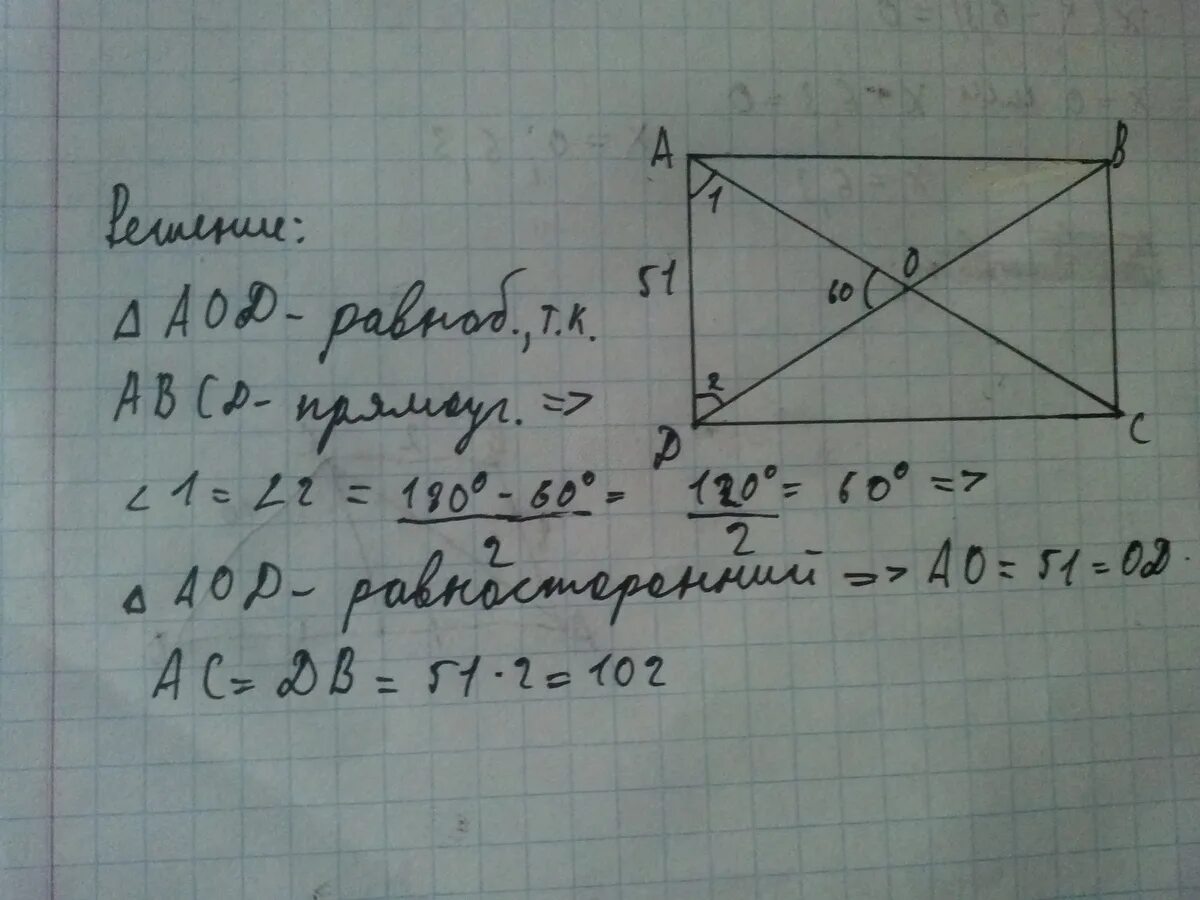 Решение:
Δ AOD - равноб., т.к.
ABCD - прямоуг. =>
∠1 = ∠2 = (180° - 60°)/2 = 120°/2 = 60° =>
Δ AOD - равносторонний => AO = 51 = OD.
AC = DB = 51 · 2 = 102
A B
1
51 60 O
2
D C